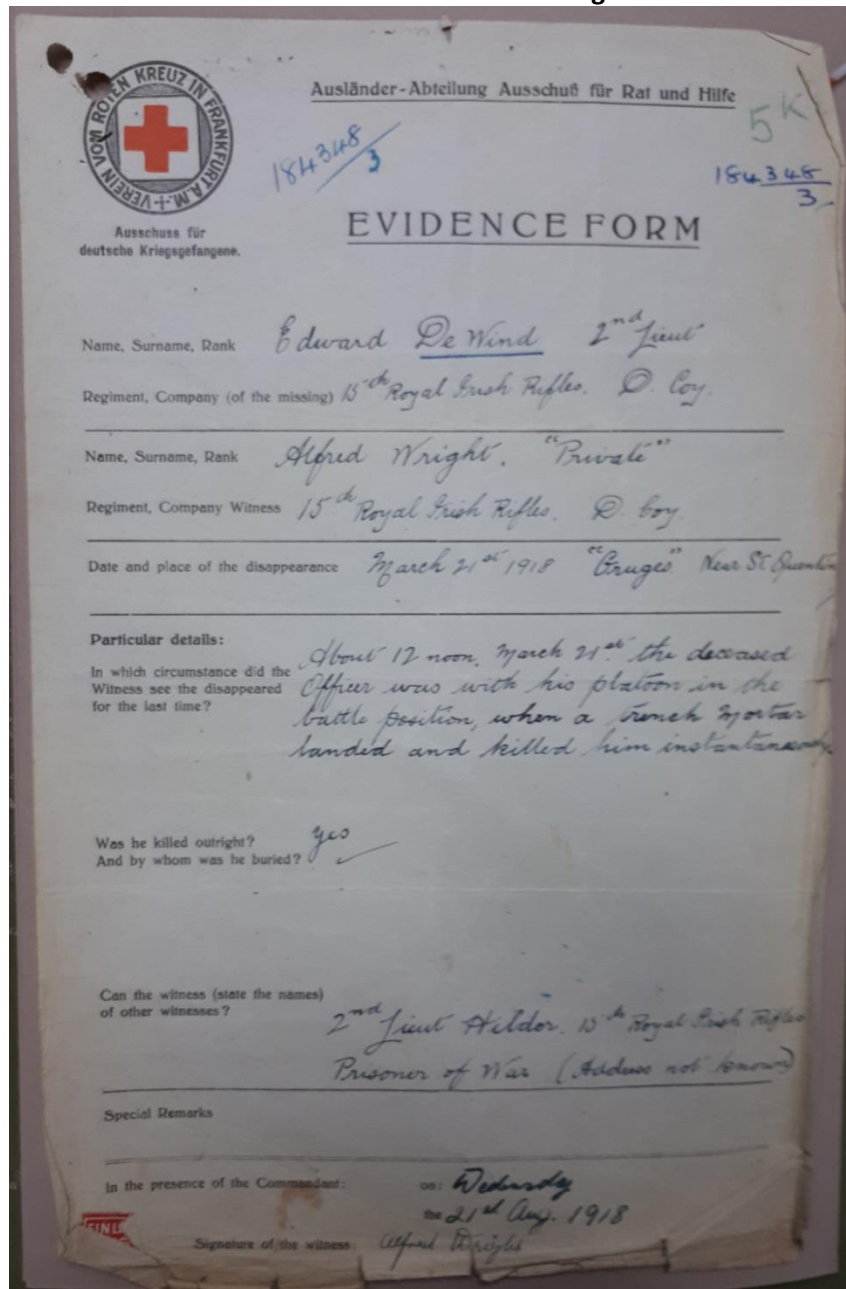 VEREIN VOM ROTEN KREUZ IN FRANKFURT A.M.
Ausschuss für
deutsche Kriegsgefangene.
Ausländer-Abteilung Ausschuß für Rat und Hilfe
5 K
184348
3
184348
3
EVIDENCE FORM
Name, Surname, Rank Edward De Wind 2nd Lieut
Regiment, Company (of the missing) 15th Royal Irish Rifles. D. Coy.
Name, Surname, Rank Alfred Wright. "Private"
Regiment, Company Witness 15th Royal Irish Rifles. D. Coy.
Date and place of the disappearance March 21st 1918 "Gruges" Near St Quentin
Particular details:
In which circumstance did the
Witness see the disappeared
for the last time?
About 12 noon, March 21st the deceased
Officer was with his platoon in the
battle position, when a trench Mortar
landed and killed him instantaneously
Was he killed outright? yes
And by whom was he buried?
Can the witness (state the names)
of other witnesses?
2nd Lieut 15th Royal Irish Rifles
Prisoner of War (Address not known)
Special Remarks
In the presence of the Commandant: on: Wednesday
the 21st Aug. 1918
Signature of the witness: Alfred Wright